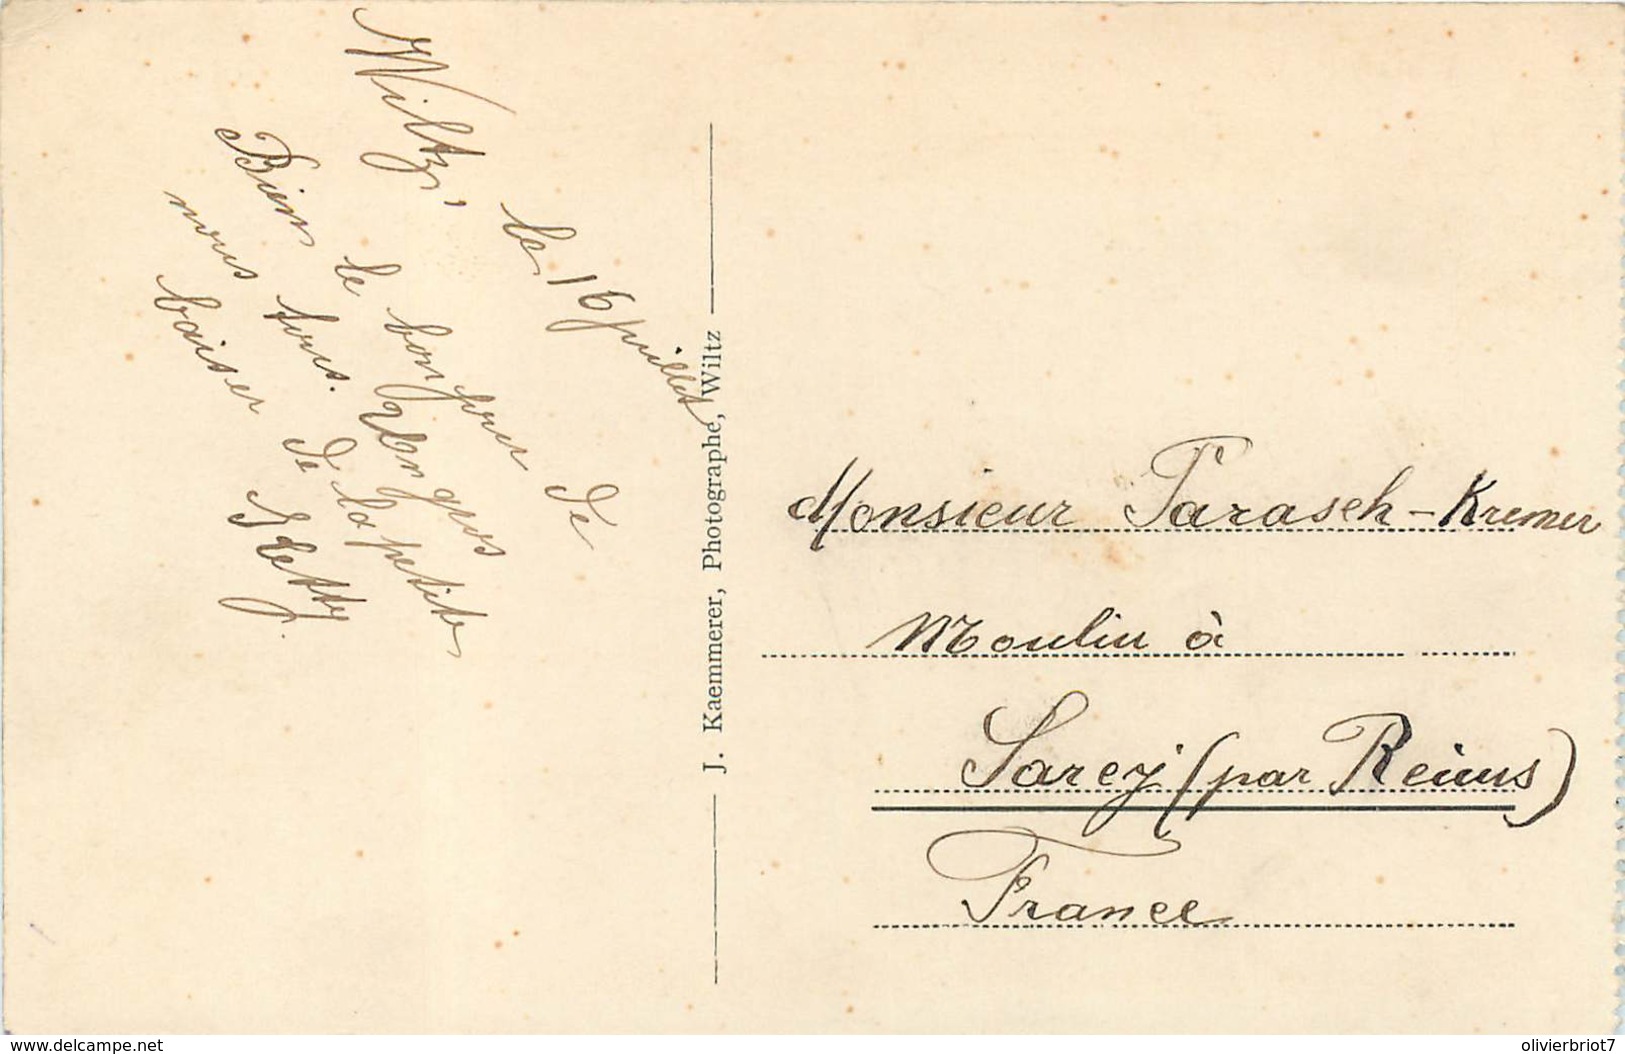 Wiltz, le 16 juillet
Bien le bonjour de
nous tous. Un gros
baiser de la petite
Ketty.
J. Kaemmerer, Photographe, Wiltz
Monsieur Parasch-Kremer
Moulin à
Sarcy (par Reims)
France
www.delcampe.net
olivierbriot7